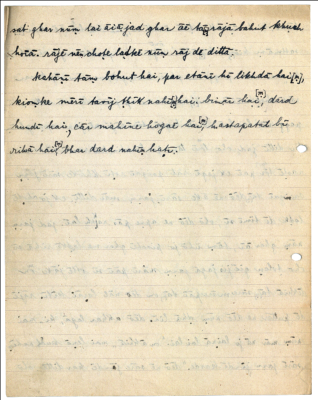 sat ghar nūn lai āiā jad ghar āe tāṅ rājā bahut khush
hoiā. rāje ne choṭe laṛke nūn rāj de dittā.
Kahānī tāṅ bohut hai, par etānī hī likhdā hai[ṅ],
kionke merī tavīyat ṭhīk nahīṅ hai: bimār hai[ṅ], dard
hundī hai, cār mahīne hogae hai[ṅ], haspatāl bī
rihā hai[ṅ], bhar dard nahīn haṭī.